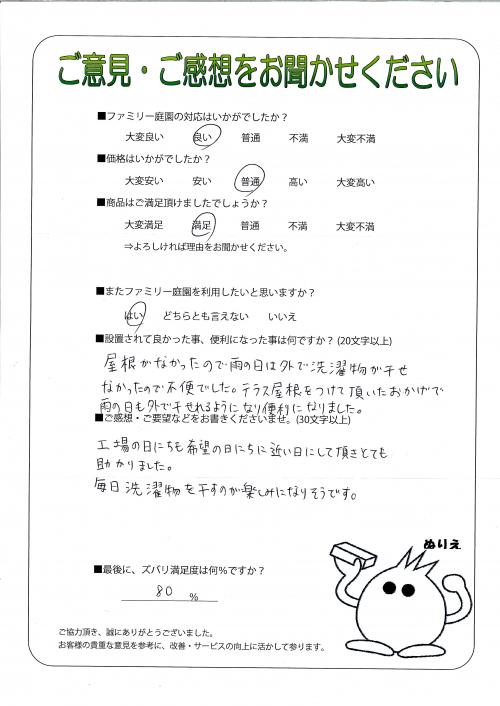 ご意見・ご感想をお聞かせください
■ファミリー庭園の対応はいかがでしたか？
大変良い 良い 普通 不満 大変不満
■価格はいかがでしたか？
大変安い 安い 普通 高い 大変高い
■商品はご満足頂けましたでしょうか？
大変満足 満足 普通 不満 大変不満
⇒よろしければ理由をお聞かせください。
■またファミリー庭園を利用したいと思いますか？
はい どちらとも言えない いいえ
■設置されて良かった事、便利になった事は何ですか？(20文字以上)
屋根がなかったので雨の日は外で洗濯物が干せ
なかったので不便でした。テラス屋根をつけて頂いたおかげで
雨の日も外で干せれるようになり便利になりました。
■ご感想・ご要望などをお書きくださいませ。(30文字以上)
工場の日にちも希望の日にちに近い日にして頂きとても
助かりました。
毎日洗濯物を干すのが楽しみになりそうです。
ぬりえ
■最後に、ズバリ満足度は何%ですか？
80 %
ご協力頂き、誠にありがとうございました。
お客様の貴重な意見を参考に、改善・サービスの向上に活かして参ります。